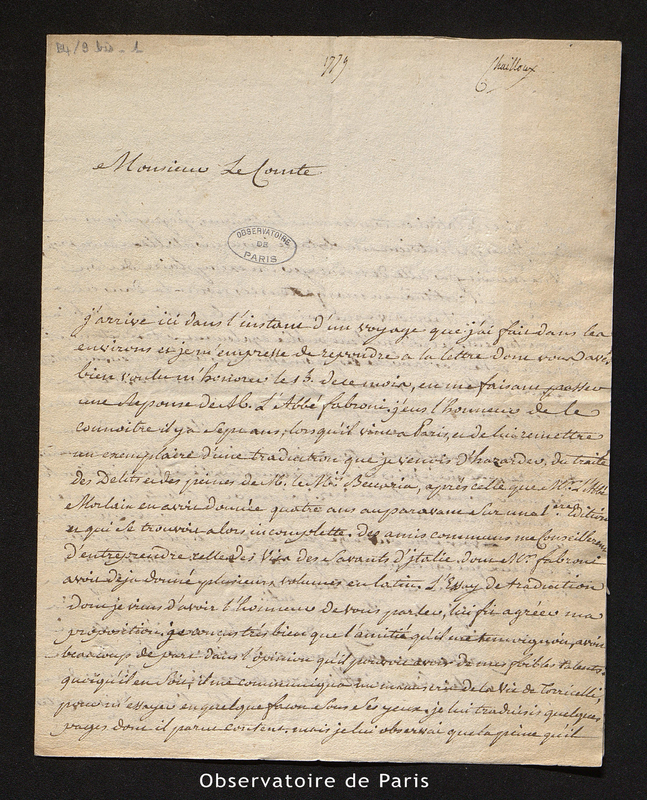 B4/9 bis - 1
1779
Chailloux
Monsieur Le Comte
OBSERVATOIRE
DE
PARIS
j'arrive ici dans l'instant d'un voyage que j'ai fait dans les
environs et je m'empresse de repondre a la lettre dont vous avés
bien voulu m'honorer le 15. de ce mois, en me faisant passer
une Réponse de M. L'Abbé fabroni. j'eus l'honneur de le
connoitre il y a Sept ans, lorsqu'il vint a Paris, et de lui remettre
un exemplaire d'une traduction que je venois d'hazarder, du traité
des Delits et des peines de M. le Mis Beccaria, après celle que Mr. L'Abbé
Morlaix en avoit donnée quatre ans auparavant Sur une 1ere Edition
et qui Se trouvoit alors incomplette. des amis communs me Conseillerent
d'entreprendre celle des Vies des Savants d'jtalie dont Mr. fabroni
avoit deja donné plusieurs volumes en latin. L'Essay de traduction
dont je viens d'avoir l'honneur de vous parler, lui fit agréer ma
proposition. je conçus très bien que l'amitié qu'il me temoignoit, avoit
beaucoup de part dans l'opinion qu'il pouvoit avoir de mes foibles talents.
quoiqu'il en Soit, il me communiqua un manuscrit de la Vie de Torricelli,
pour m'essayer en quelque façon Sous Ses yeux. je lui traduisis quelques
pages dont il parut content. mais je lui observai que la peine qu'il
Observatoire de Paris